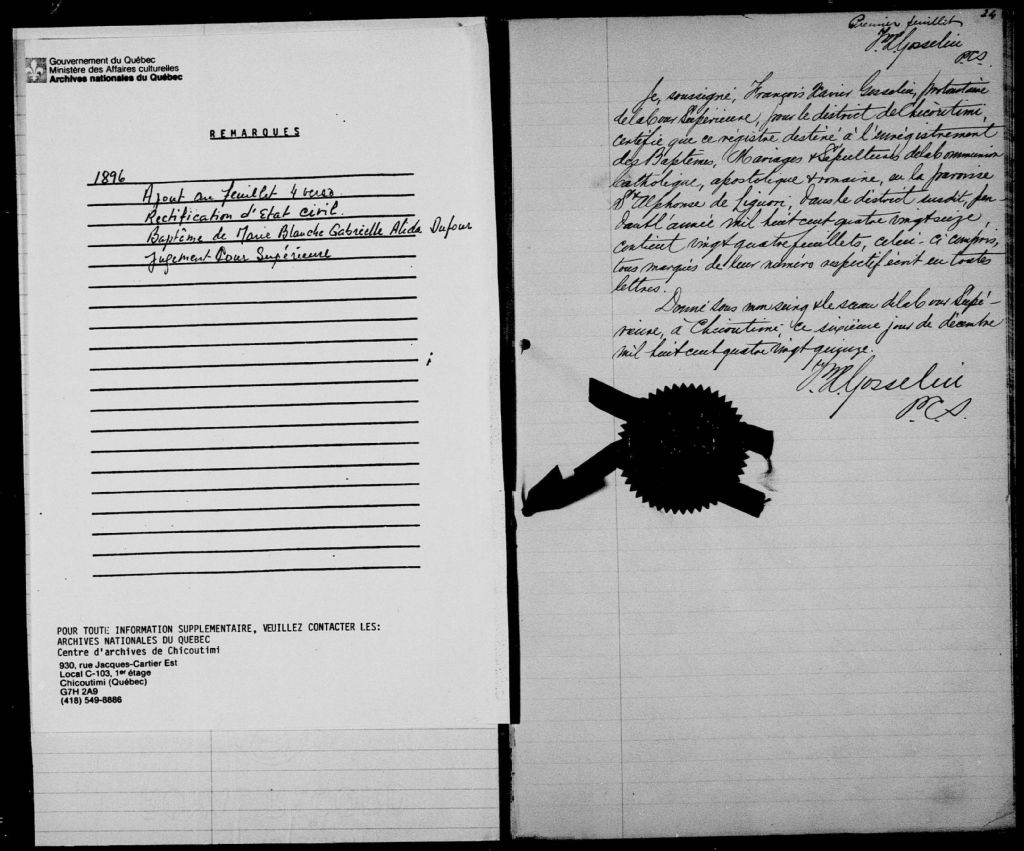 Gouvernement du Québec
Ministère des Affaires culturelles
Archives nationales du Québec
REMARQUES
1896
Ajout au feuillet 4 verso.
Rectification d'Etat civil.
Baptême de Marie Blanche Gabrielle Alida Dufour
Jugement Cour Supérieure
POUR TOUTE INFORMATION SUPPLEMENTAIRE, VEUILLEZ CONTACTER LES:
ARCHIVES NATIONALES DU QUEBEC
Centre d'archives de Chicoutimi
930, rue Jacques-Cartier Est
Local C-103, 1er étage
Chicoutimi (Québec)
G7H 2A9
(418) 549-8886
24
Premier feuillet
Gosselin
P.C.S.
Je, soussigné, François Xavier Gosselin, protonotaire
de la Cour Supérieure, pour le district de Chicoutimi,
certifie que ce régistre destiné à l'enrégistrement
des Baptêmes, Mariages & Sépultures de la Communion
Catholique, apostolique & romaine, en la paroisse
St Alphonse de Liguori, dans le district susdit, pen-
dant l'année mil huit cent quatre vingt seize,
contient vingt quatre feuillets, celui-ci compris,
tous marqués de leur numéro respectif écrit en toutes
lettres.
Donné sous mon seing & le sceau de la Cour Supé-
rieure, à Chicoutimi, ce sixième jour de décembre
mil huit cent quatre vingt quinze.
Gosselin
P.C.S.